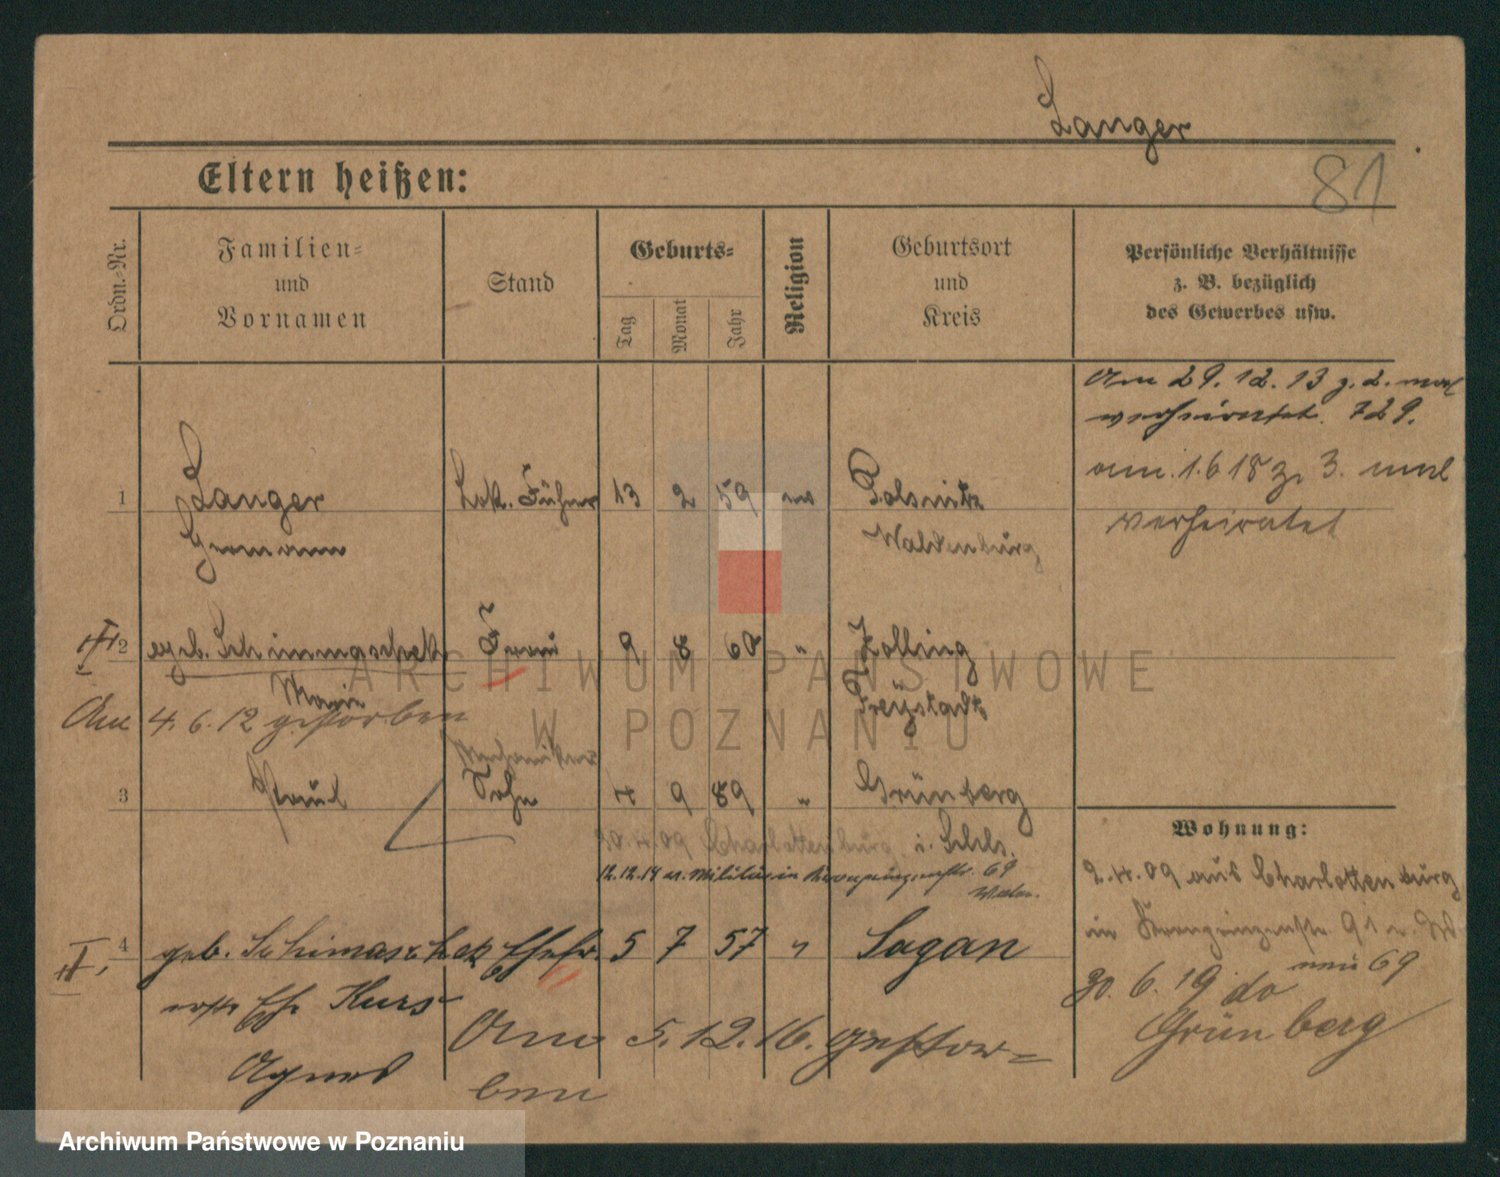 Langer
81
Eltern heißen:
Ordn.-Nr.
Familien- und Vornamen
Stand
Geburts-
Tag
Monat
Jahr
Religion
Geburtsort und Kreis
Persönliche Verhältnisse
z. B. bezüglich
des Gewerbes usw.
Am 29. 12. 13 z. 2. mal
verheiratet. 729.
am 1. 6 18 z. 3. mal
verheiratet
1 Langer Lok. Führer 13 2 59 ev Polsnitz
Hermann Waldenburg
I 2 geb. Schimmaschek Frau 9 8 60 " Zölling
Marie Freystadt
Am 4. 6. 12 gestorben
Mechaniker
3 Paul Sohn 4 9 89 " Grünberg
i. Schls.
20. 4. 09 Charlottenburg
12. 12. 14 z. Militär in 69
Wohnung:
2. 4. 09 aus Charlottenburg
in 91
neu 69
30. 6. 19 do
Grünberg
II. 4 geb. Schimaschek Ehefr. 5 7 57 " Sagan
erste Ehe Kurs
Agnes
Am 5. 12. 16. gestor=
ben
ARCHIWUM PAŃSTWOWE
W POZNANIU
Archiwum Państwowe w Poznaniu